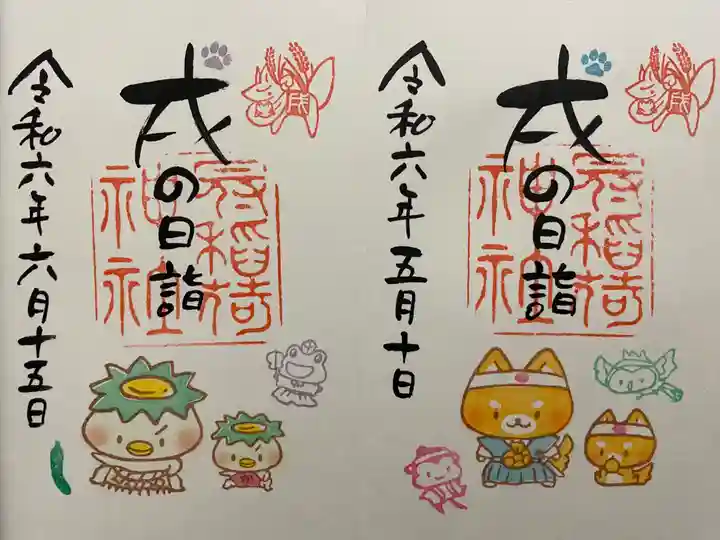 戌の日詣
冠稲荷
神社
令和六年五月十日
戌の日詣
冠稲荷
神社
令和六年六月十五日